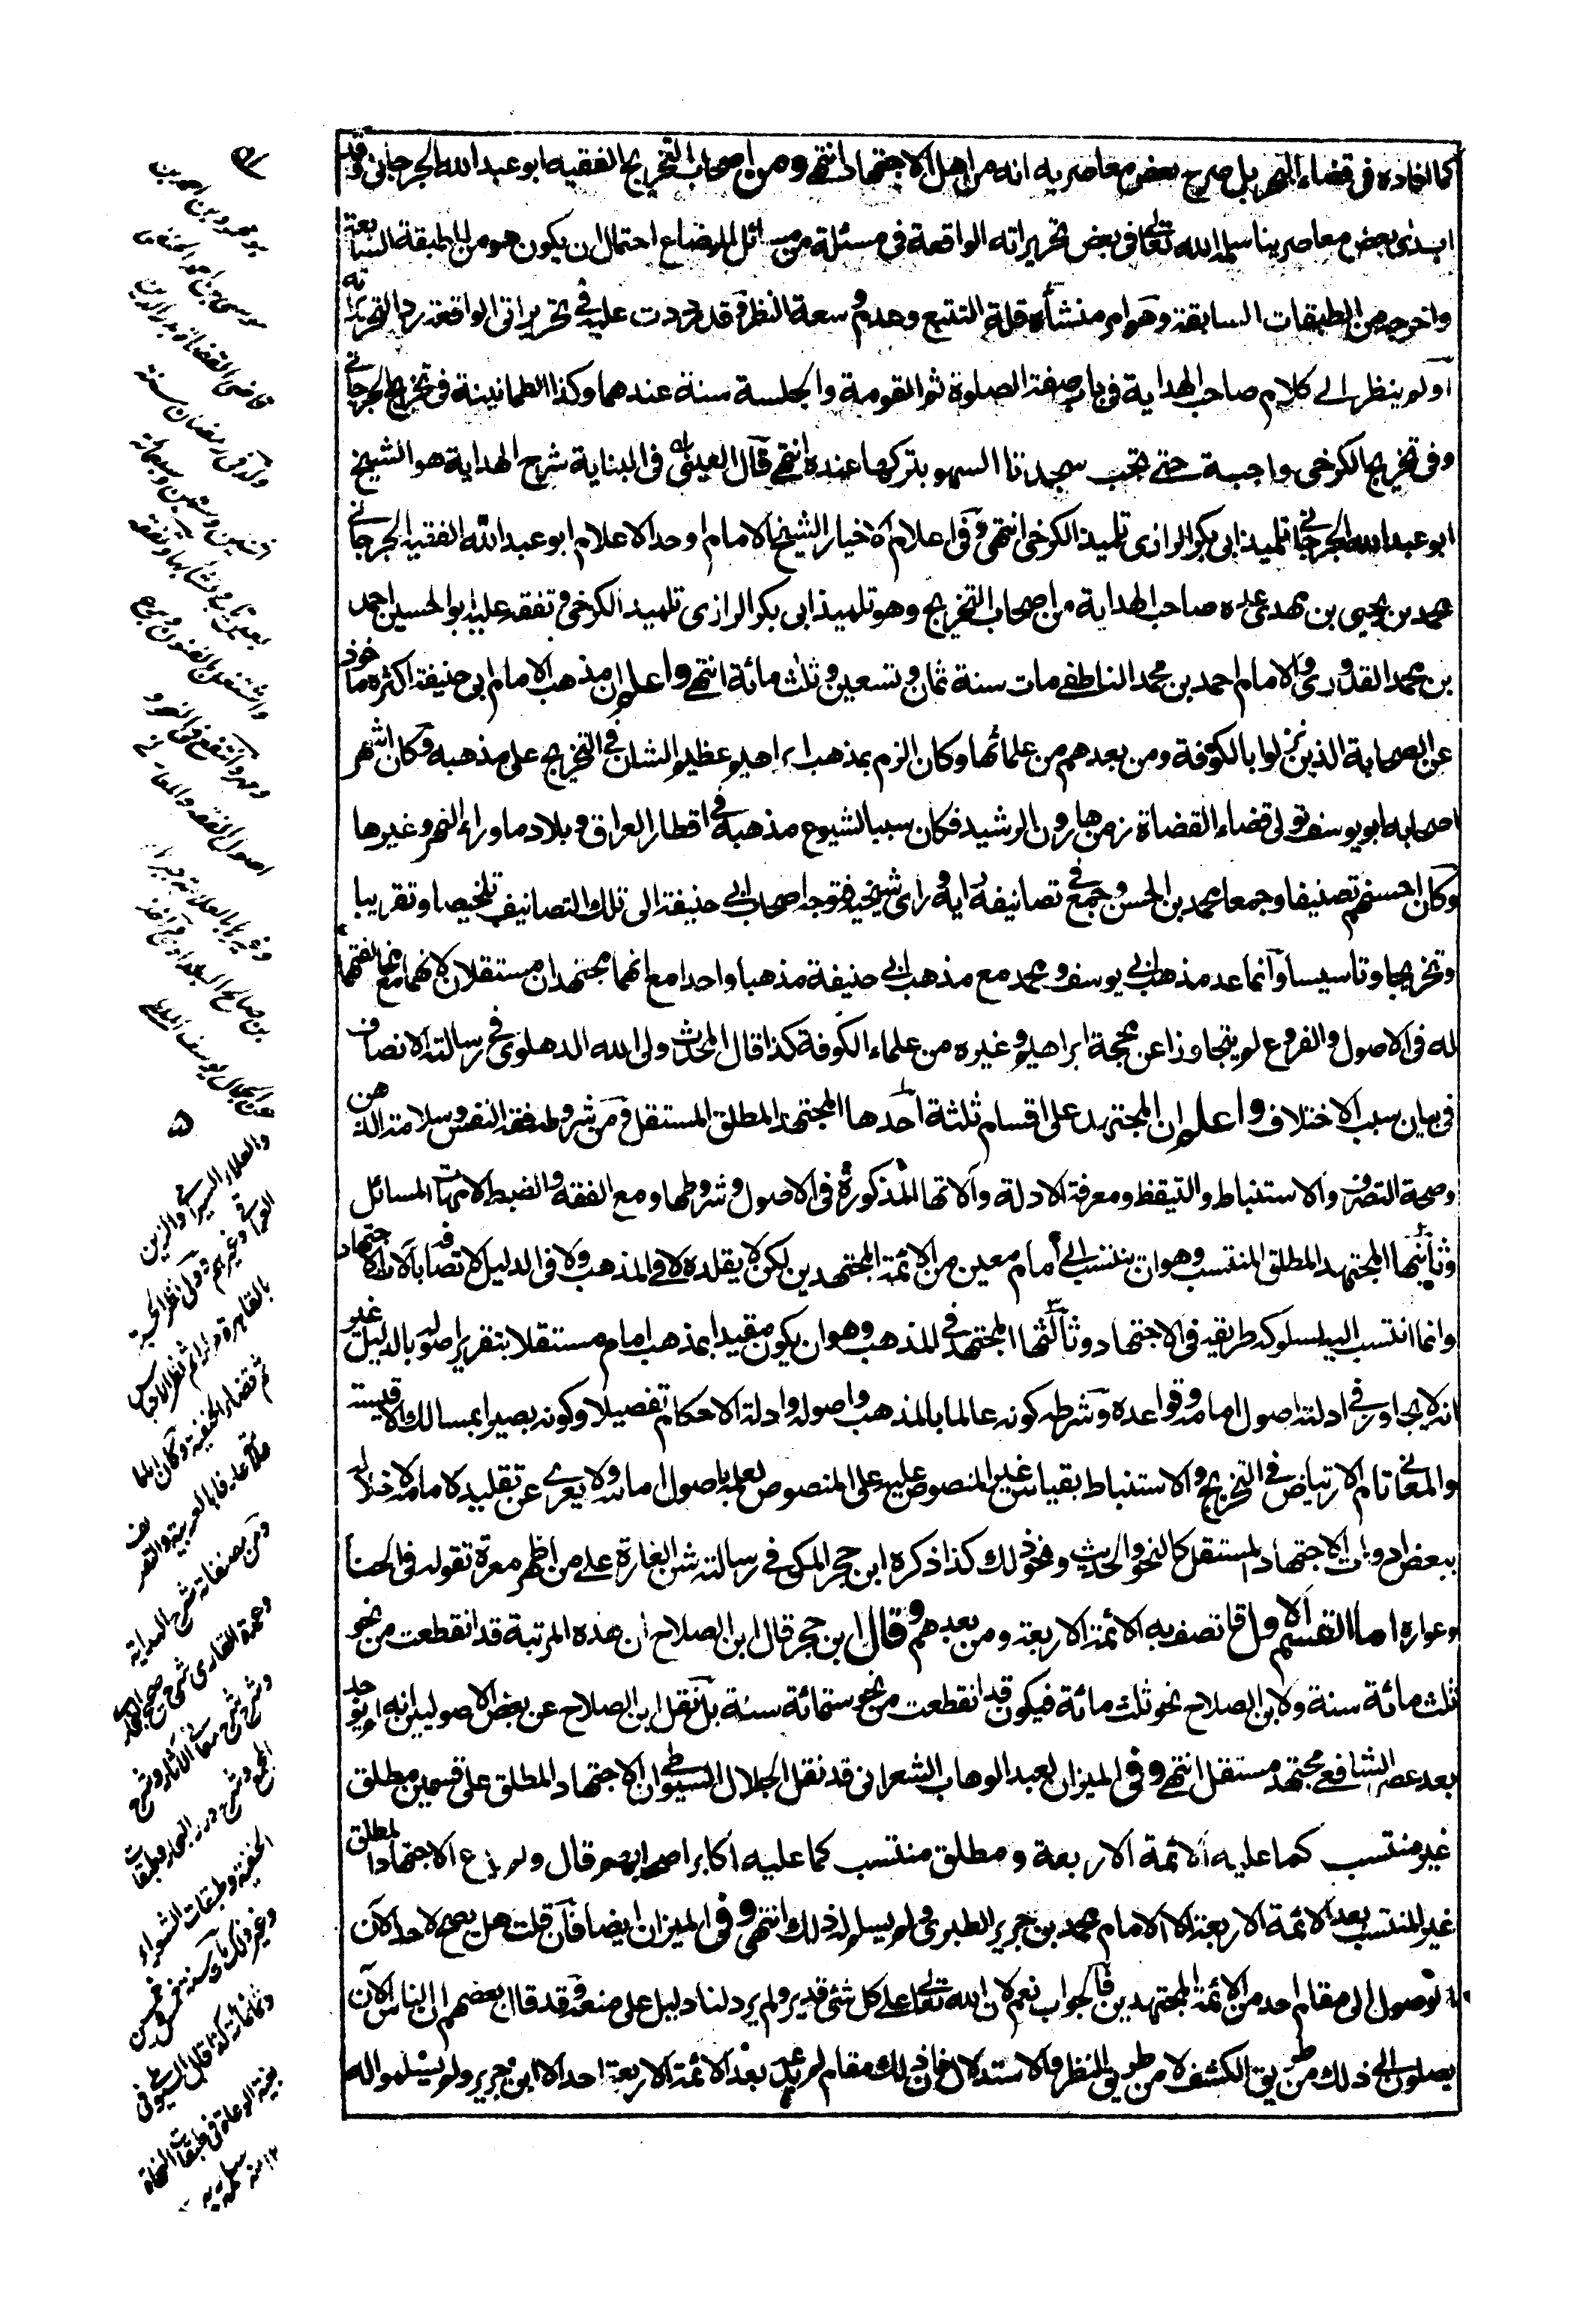 كما افاده فى قضاء النهر بل صرح بعض معاصريه انه من اهل الاجتهاد انتهى ومن اصحاب التخريج الفقيه ابو عبد الله الجرجانى وقد
ابدى بعض معاصرينا سلمه الله تعالى فى بعض تحريراته الواقعة فى مسئلة من مسائل الرضاع احتمال ان يكون هو من الطبقة السابعة
واخرجه من الطبقات السابقة وهو امر منشأه قلة التتبع وعدم وسعة النظر وقد رددت عليه فى تحريراتى الواقعة رد التحريراته
اولم ينظر الے كلام صاحب الهداية فى باب صفة الصلوة ثم القومة والجلسة سنة عندهما وكذا الطمانينة فى تخريج الجرجانے
وفى تخريج الكرخى واجبة حتے تجب سجدتا السهو بتركها عنده انتهے قال العينى فى البناية شرح الهداية هو الشيخ
ابو عبد الله الجرجانے تلميذ ابى بكر الرازى تلميذ الكرخى انتهى وفى اعلام الاخيار الشيخ الامام اوحد الاعلام ابو عبد الله الفقيه الجرجانے
محمد بن يحيى بن مهدى عده صاحب الهداية من اصحاب التخريج وهو تلميذ ابى بكر الرازى تلميذ الكرخى وتفقه عليه ابو الحسين احمد
بن محمد القدورى والامام احمد بن محمد الناطفے مات سنة ثمان وتسعين وثلث مائة انتهے واعلم ان مذهب الامام ابى حنيفة اكثره ماخوذ
عن الصحابة الذين نزلوا بالكوفة ومن بعدهم من علمائها وكان الزم بمذهب ابراهيم عظيم الشان فى التخريج على مذهبه وكان اشهر
اصحابه ابو يوسف تولى قضاء القضاة زمن هارون الرشيد فكان سببا لشيوع مذهبه فى اقطار العراق وبلاد ما وراء النهر وغيرها
وكان احسنهم تصنيفا وجمعا محمد بن الحسن وجمع فى تصانيفه رايه وراى شيخيه فتوجه اصحاب ابى حنيفة الى تلك التصانيف تلخيصا وتقريبا
وتخريجا وتاسيسا وانما عد مذهب ابى يوسف ومحمد مع مذهب ابى حنيفة مذهبا واحدا مع انهما مجتهدان مستقلان لانهما مع مخالفتهما
له فى الاصول والفروع لم يتجاوزا عن محجة ابراهيم وغيره من علماء الكوفة كذا قال المحدث ولى الله الدهلوى فى رسالته الانصاف
فى بيان سبب الاختلاف واعلم ان المجتهد على اقسام ثلثة احدها المجتهد المطلق المستقل ومن شروطه فقه النفس وسلامة الذهن
وصحة التصرف والاستنباط والتيقظ ومعرفة الادلة وآلاتها المذكورة فى الاصول وشروطها ومع الفقه والضبط لامهات المسائل
وثانيها المجتهد المطلق المنتسب وهو ان ينتسب الى امام معين من الائمة المجتهدين لكن لا يقلده لا فى المذهب ولا فى الدليل لاتصافه بآلات الاجتهاد
وانما انتسب اليه لسلوكه طريقه فى الاجتهاد وثالثها المجتهد فى المذهب وهو ان يكون مقيدا بمذهب امام مستقلا بتقرير اصوله بالدليل غير
انه لا يجاوز فى ادلته اصول امامه وقواعده وشرطه كونه عالما بالمذهب واصوله وادلة الاحكام تفصيلا وكونه بصيرا بمسالك الاقيسة
والمعانى تام الارتياض فى التخريج والاستنباط بقياس غير المنصوص عليه على المنصوص لعلمه باصول امامه ولا يعرى عن تقليد لامامه لاخلاله
ببعض ادوات الاجتهاد المستقل كالنحو والحديث ونحو ذلك كذا ذكره ابن حجر المكى فى رسالته شن الغارة على من اظهر معرة تقوله فى الحنا
وعواره اما القسم الاول فاتصف به الائمة الاربعة ومن بعدهم وقال ابن حجر قال ابن الصلاح ان هذه المرتبة قد انقطعت من نحو
ثلث مائة سنة ولابن الصلاح نحو ثلث مائة فيكون قد انقطعت من نحو ستمائة سنة بل نقل ابن الصلاح عن بعض الاصوليين انه لم يوجد
بعد عصر الشافعے مجتهد مستقل انتهے وفى الميزان لعبد الوهاب الشعرانى قد نقل الجلال السيوطى ان الاجتهاد المطلق على قسمين مطلق
غير منتسب كما عليه الائمة الاربعة ومطلق منتسب كما عليه اكابر اصحابهم قال ولم يدع الاجتهاد المطلق
غير المنتسب بعد الائمة الاربعة الا الامام محمد بن جرير الطبرى ولم يسلم له ذلك انتهى وفى الميزان ايضا فان قلت هل يصح لاحد الآن
الوصول الى مقام احد من الائمة المجتهدين فالجواب نعم لان الله تعالى على كل شئ قدير ولم يرد لنا دليل على منعه وقد قال بعضهم ان الناس الآن
يصلون الى ذلك من طريق الكشف لا من طريق النظر والاستدلال فان ذلك مقام لم يدعه بعد الائمة الاربعة احد الا ابن جرير ولم يسلموا له
والعلاء السيرامى والزين
العراقى وغيرهم وولى نظر الحسبة
بالقاهرة مرارا ثم نظر الاحباس
ثم قضاء الحنفية وكان اماما
علامة عارفا بالعربية والتصريف
ومن مصنفاته شرح الهداية
وعمدة القارى شرح صحيح البخارى
وشرح شرح معانى الآثار وشرح
المجمع وشرح درر البحار وطبقات
الحنفية وطبقات الشعراء
وغير ذلك مات سنة خمس وخمسين
وثمانمائة كذا قال السيوطى فى
بغية الوعاة فى طبقات النحاة
١٢ منه سلمه ربه